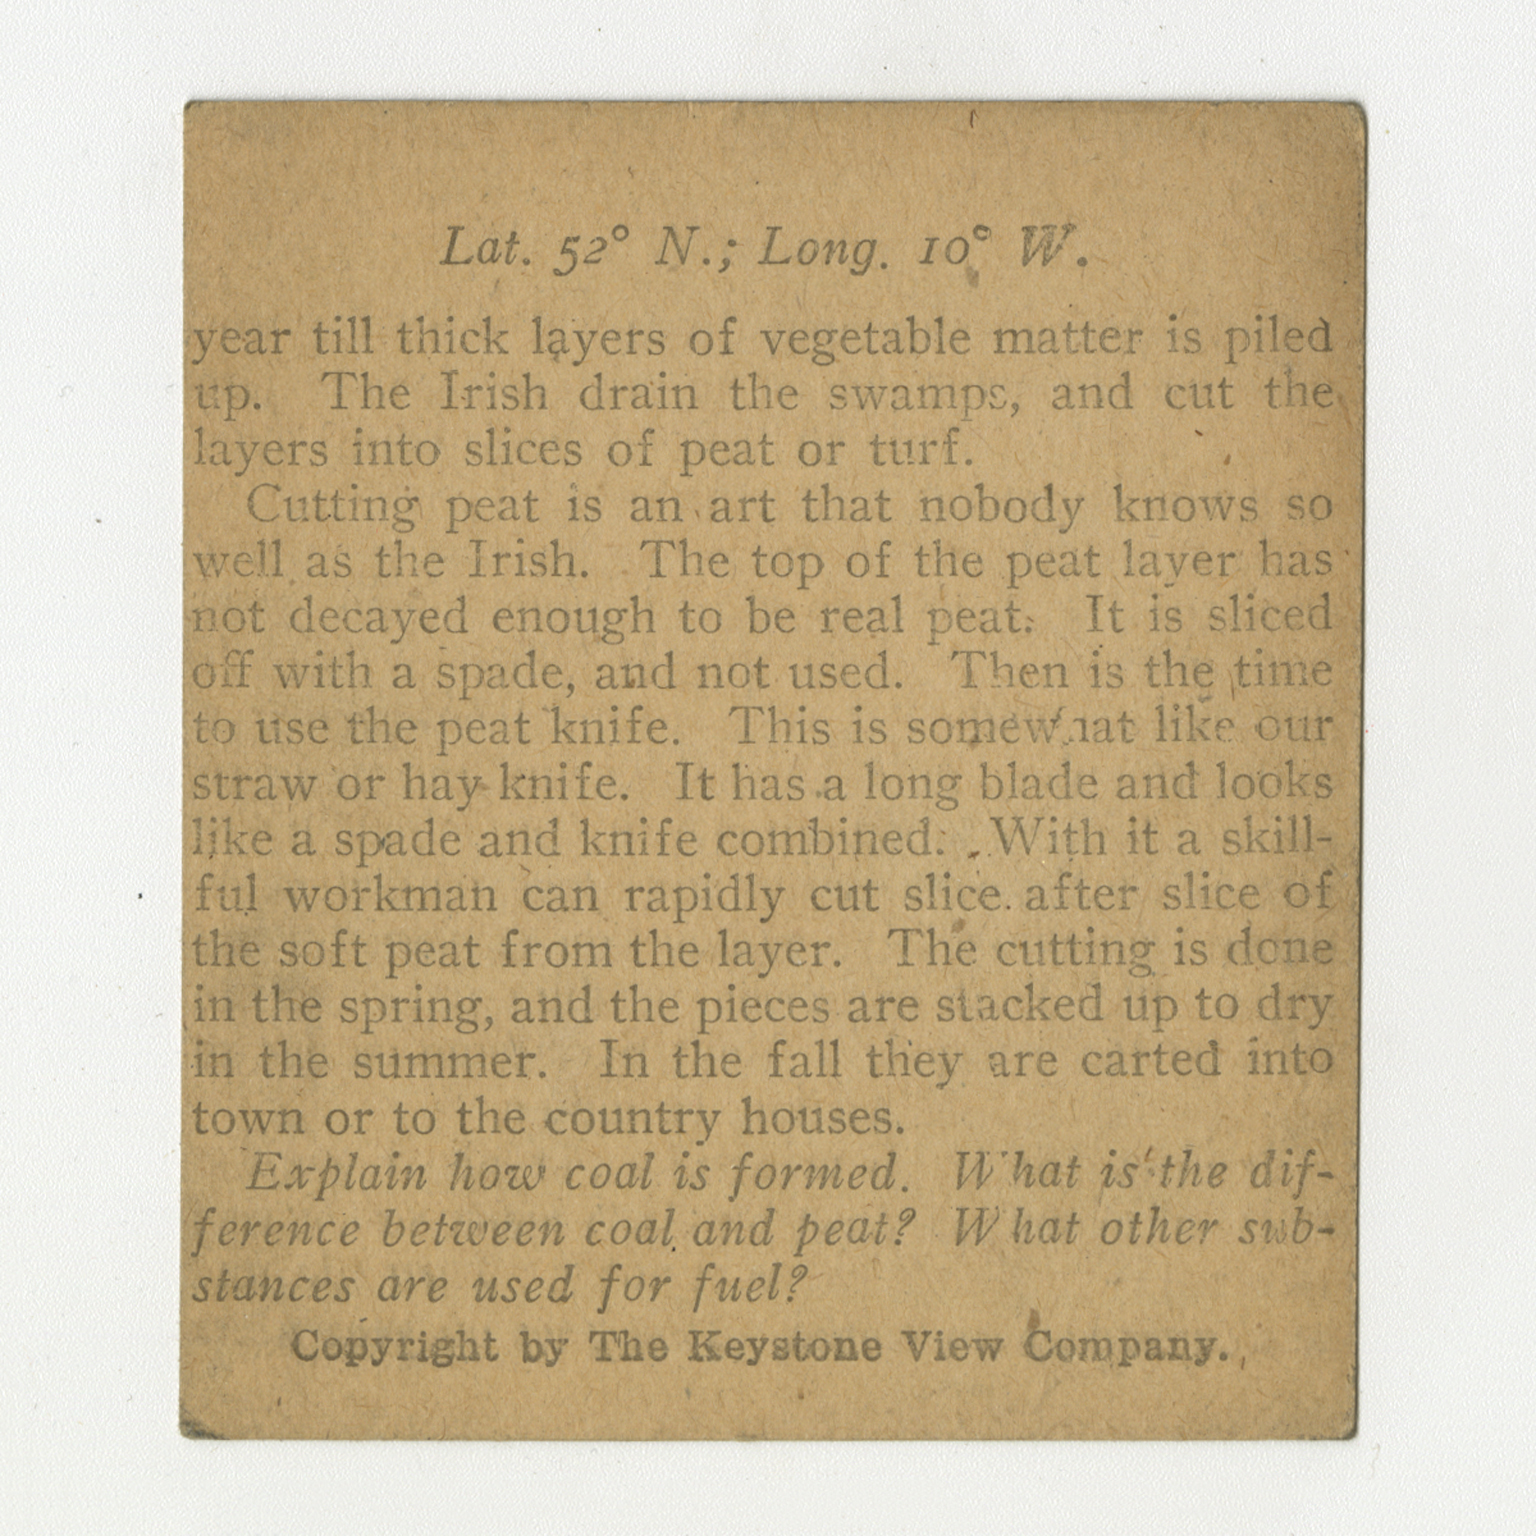 Lat. 52° N.; Long. 10° W.
year till thick layers of vegetable matter is piled
up. The Irish drain the swamps, and cut the
layers into slices of peat or turf.
Cutting peat is an art that nobody knows so
well as the Irish. The top of the peat layer has
not decayed enough to be real peat. It is sliced
off with a spade, and not used. Then is the time
to use the peat knife. This is somewhat like our
straw or hay knife. It has a long blade and looks
like a spade and knife combined. With it a skill-
ful workman can rapidly cut slice after slice of
the soft peat from the layer. The cutting is done
in the spring, and the pieces are stacked up to dry
in the summer. In the fall they are carted into
town or to the country houses.
Explain how coal is formed. What is the dif-
ference between coal and peat? What other sub-
stances are used for fuel?
Copyright by The Keystone View Company.